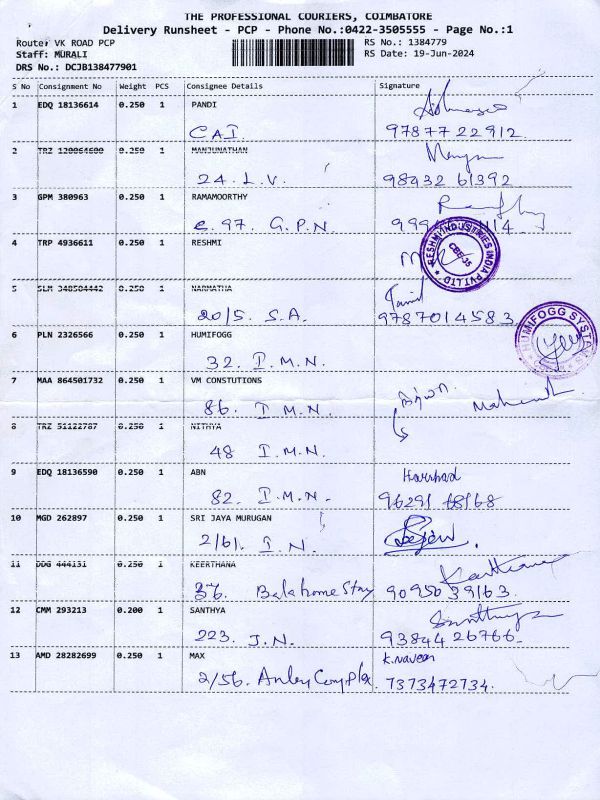 THE PROFESSIONAL COURIERS, COIMBATORE
Delivery Runsheet - PCP - Phone No.:0422-3505555 - Page No.:1
Route: VK ROAD PCP RS No.: 1384779
Staff: MURALI RS Date: 19-Jun-2024
DRS No.: DCJB138477901
S No Consignment No Weight PCS Consignee Details Signature
1 EDQ 18136614 0.250 1 PANDI
CAI 97877 22912
2 TRZ 120064600 0.250 1 MANJUNATHAN
24. L.V. 98432 61392
3 GPM 380963 0.250 1 RAMAMOORTHY
97. G.P.N
4 TRP 4936611 0.250 1 RESHMI
RESHMI INDUSTRIES INDIA PVT LTD
CBE-35
5 SLM 348504442 0.250 1 NARMATHA
20/5. S.A. 9787014583
6 PLN 2326566 0.250 1 HUMIFOGG
HUMIFOGG SYSTEMS
32. I.M.N.
7 MAA 864501732 0.250 1 VM CONSTUTIONS
86. I M.N.
8 TRZ 51122787 0.250 1 NITHYA
48 I.M.N.
9 EDQ 18136590 0.250 1 ABN Harshad
82. I.M.N. 96291 68168
10 MGD 262897 0.250 1 SRI JAYA MURUGAN
2/61. I.N.
11 DDG 444131 0.250 1 KEERTHANA
36. Balahome Stay 90950 39163
12 CMM 293213 0.200 1 SANTHYA
223. J.N. 93844 26766
13 AMD 28282699 0.250 1 MAX K.naveen
2/56. Complex 7373472734